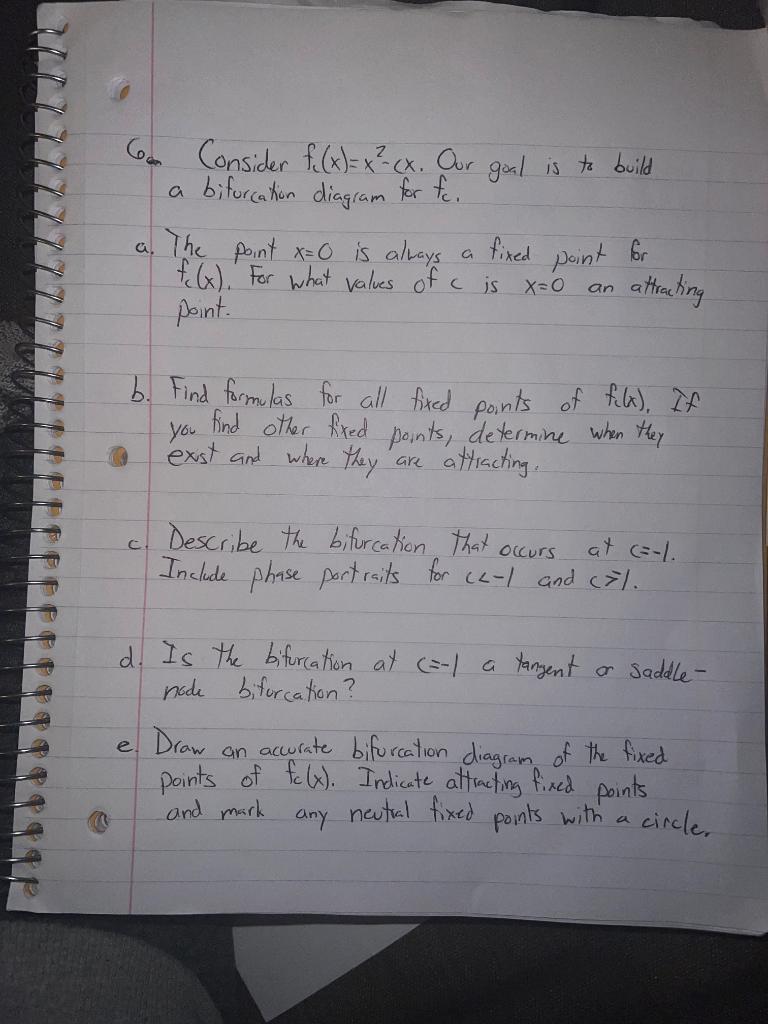 6. Consider fc(x)=x²-cx. Our goal is to build
a bifurcation diagram for fc.
a. The point x=0 is always a fixed point for
fc(x). For what values of c is x=0 an attracting
point.
b. Find formulas for all fixed points of fc(x). If
you find other fixed points, determine when they
exist and where they are attracting.
c. Describe the bifurcation that occurs at c=-1.
Include phase portraits for c<-1 and c>1.
d. Is the bifurcation at c=-1 a tangent or saddle-
node bifurcation?
e. Draw an accurate bifurcation diagram of the fixed
points of fc(x). Indicate attracting fixed points
and mark any neutral fixed points with a circle.